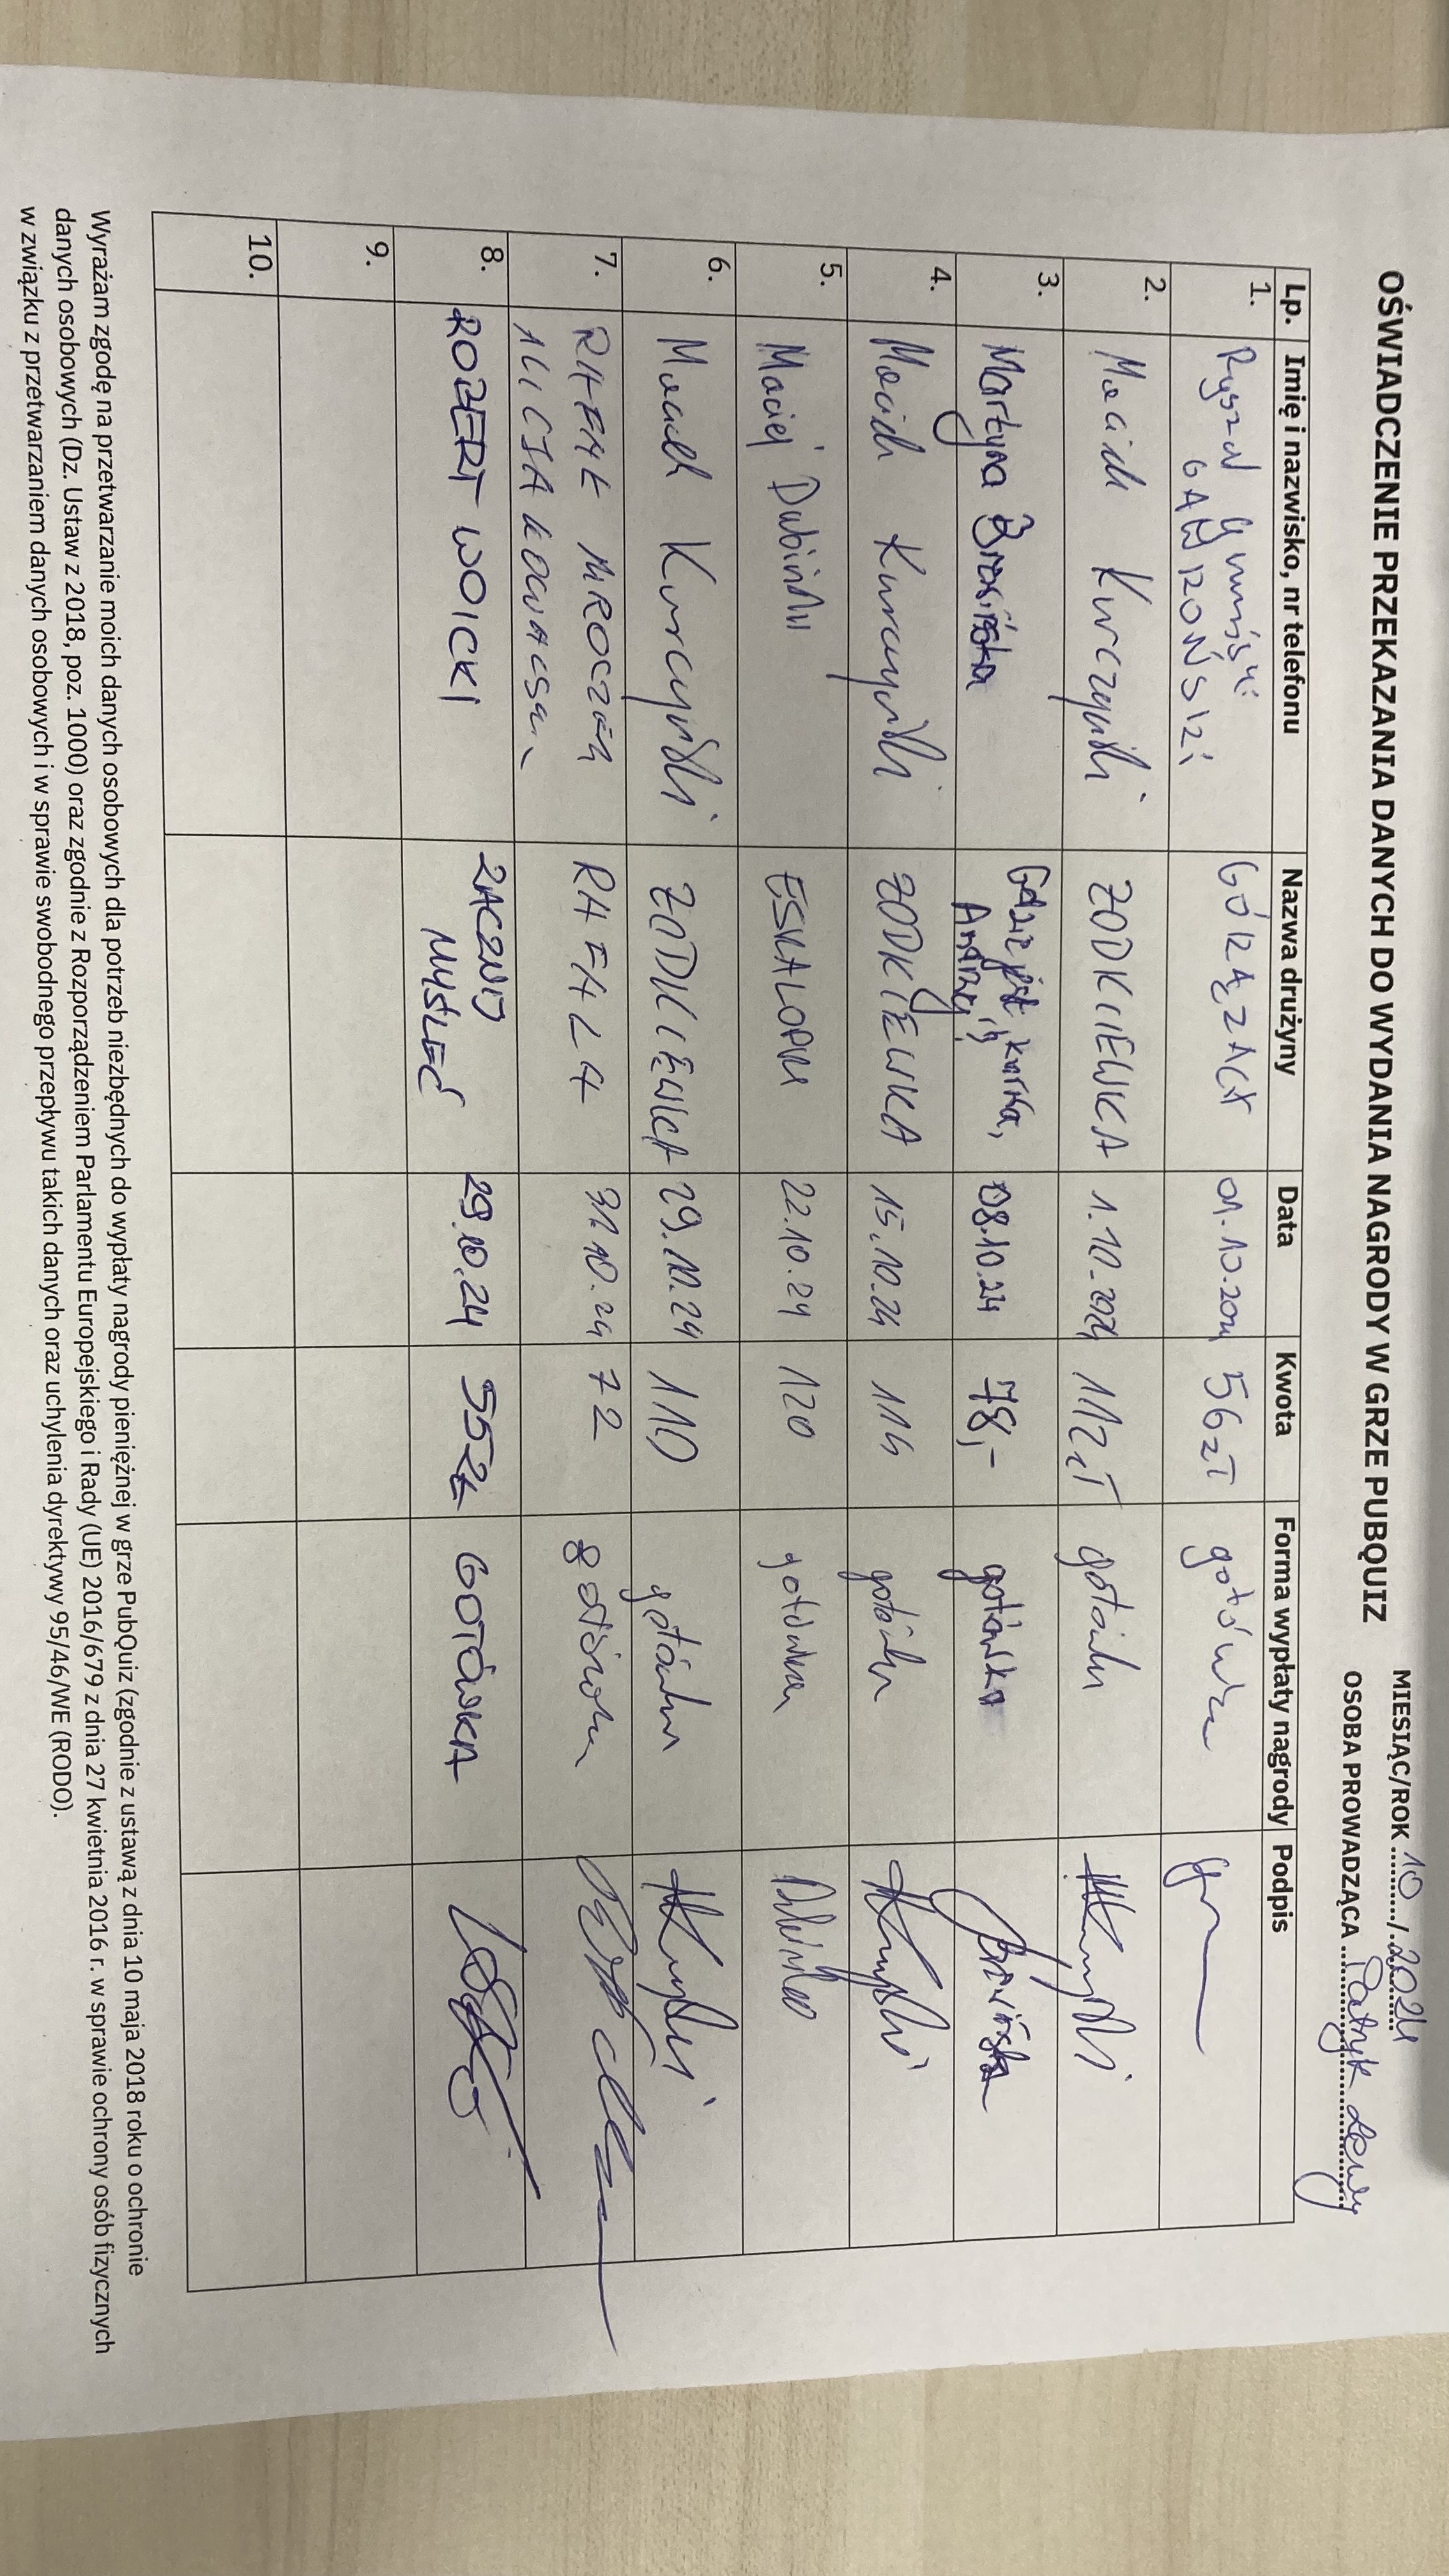 OŚWIADCZENIE PRZEKAZANIA DANYCH DO WYDANIA NAGRODY W GRZE PUBQUIZ
MIESIĄC/ROK 10 / 2024
OSOBA PROWADZĄCA Patryk
Lp. Imię i nazwisko, nr telefonu Nazwa drużyny Data Kwota Forma wypłaty nagrody Podpis
1. GAWROŃSKI 01.10.2024 56 zł gotówka
2. Maciek Kurczyński ŻODKIEWKA 1.10.2024 112 zł gotówka
3. Martyna Brzezińska Gdzie jest kurka, 08.10.24 78,- gotówka
Andrzej?!
4. Maciek Kurczyński ŻODKIEWKA 15.10.24 114 gotówka
5. Maciej Dubiński ESKALOPKI 22.10.24 120 gotówka
6. Maciek Kurczyński ŻODKIEWKA 29.10.24 110 gotówka
7. RAFAŁ MROCZEK RAFALA 31.10.24 72 gotówka
ALICJA
8. ROBERT WOICKI ZACZNIJ 29.10.24 55 zł GOTÓWKA
MYŚLEĆ
9.
10.
Wyrażam zgodę na przetwarzanie moich danych osobowych dla potrzeb niezbędnych do wypłaty nagrody pieniężnej w grze PubQuiz (zgodnie z ustawą z dnia 10 maja 2018 roku o ochronie
danych osobowych (Dz. Ustaw z 2018, poz. 1000) oraz zgodnie z Rozporządzeniem Parlamentu Europejskiego i Rady (UE) 2016/679 z dnia 27 kwietnia 2016 r. w sprawie ochrony osób fizycznych
w związku z przetwarzaniem danych osobowych i w sprawie swobodnego przepływu takich danych oraz uchylenia dyrektywy 95/46/WE (RODO).